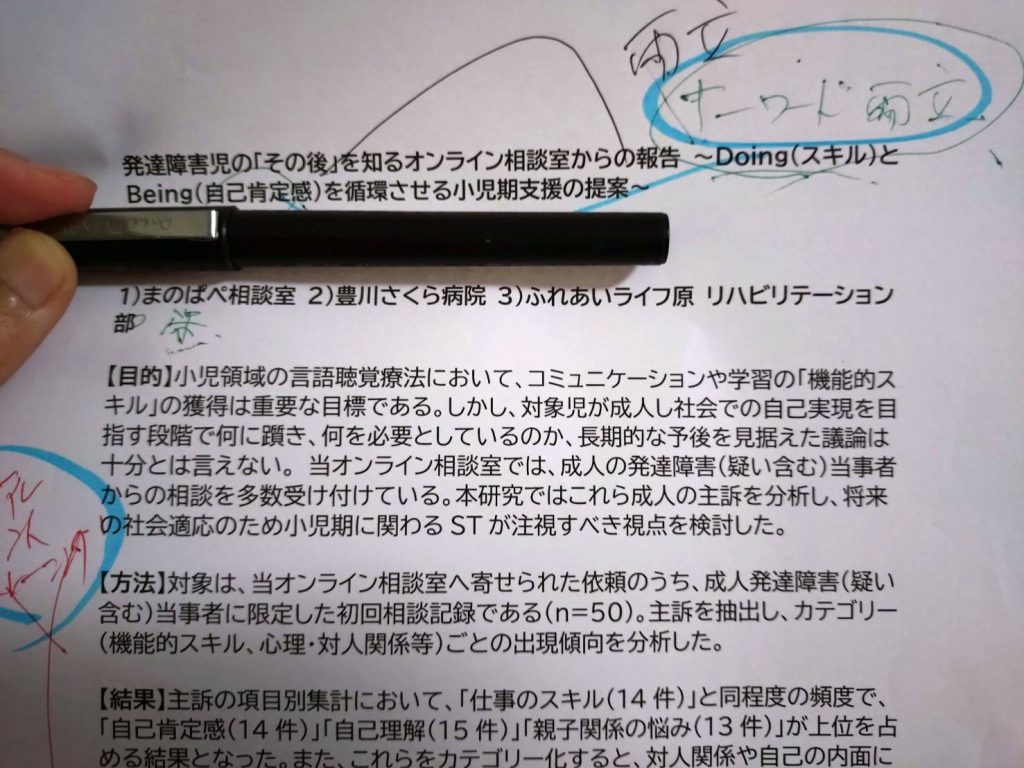 両立
キーワード 両立
発達障害児の「その後」を知るオンライン相談室からの報告 ～Doing(スキル)と
Being(自己肯定感)を循環させる小児期支援の提案～
1)まのぱぺ相談室 2)豊川さくら病院 3)ふれあいライフ原 リハビリテーション
部
【目的】小児領域の言語聴覚療法において、コミュニケーションや学習の「機能的ス
キル」の獲得は重要な目標である。しかし、対象児が成人し社会での自己実現を目
指す段階で何に躓き、何を必要としているのか、長期的な予後を見据えた議論は
十分とは言えない。 当オンライン相談室では、成人の発達障害(疑い含む)当事者
からの相談を多数受け付けている。本研究ではこれら成人の主訴を分析し、将来
の社会適応のため小児期に関わる ST が注視すべき視点を検討した。
【方法】対象は、当オンライン相談室へ寄せられた依頼のうち、成人発達障害(疑い
含む)当事者に限定した初回相談記録である(n=50)。主訴を抽出し、カテゴリー
(機能的スキル、心理・対人関係等)ごとの出現傾向を分析した。
【結果】主訴の項目別集計において、「仕事のスキル(14 件)」と同程度の頻度で、
「自己肯定感(14 件)」「自己理解(15 件)」「親子関係の悩み(13 件)」が上位を占
める結果となった。また、これらをカテゴリー化すると、対人関係や自己の内面に